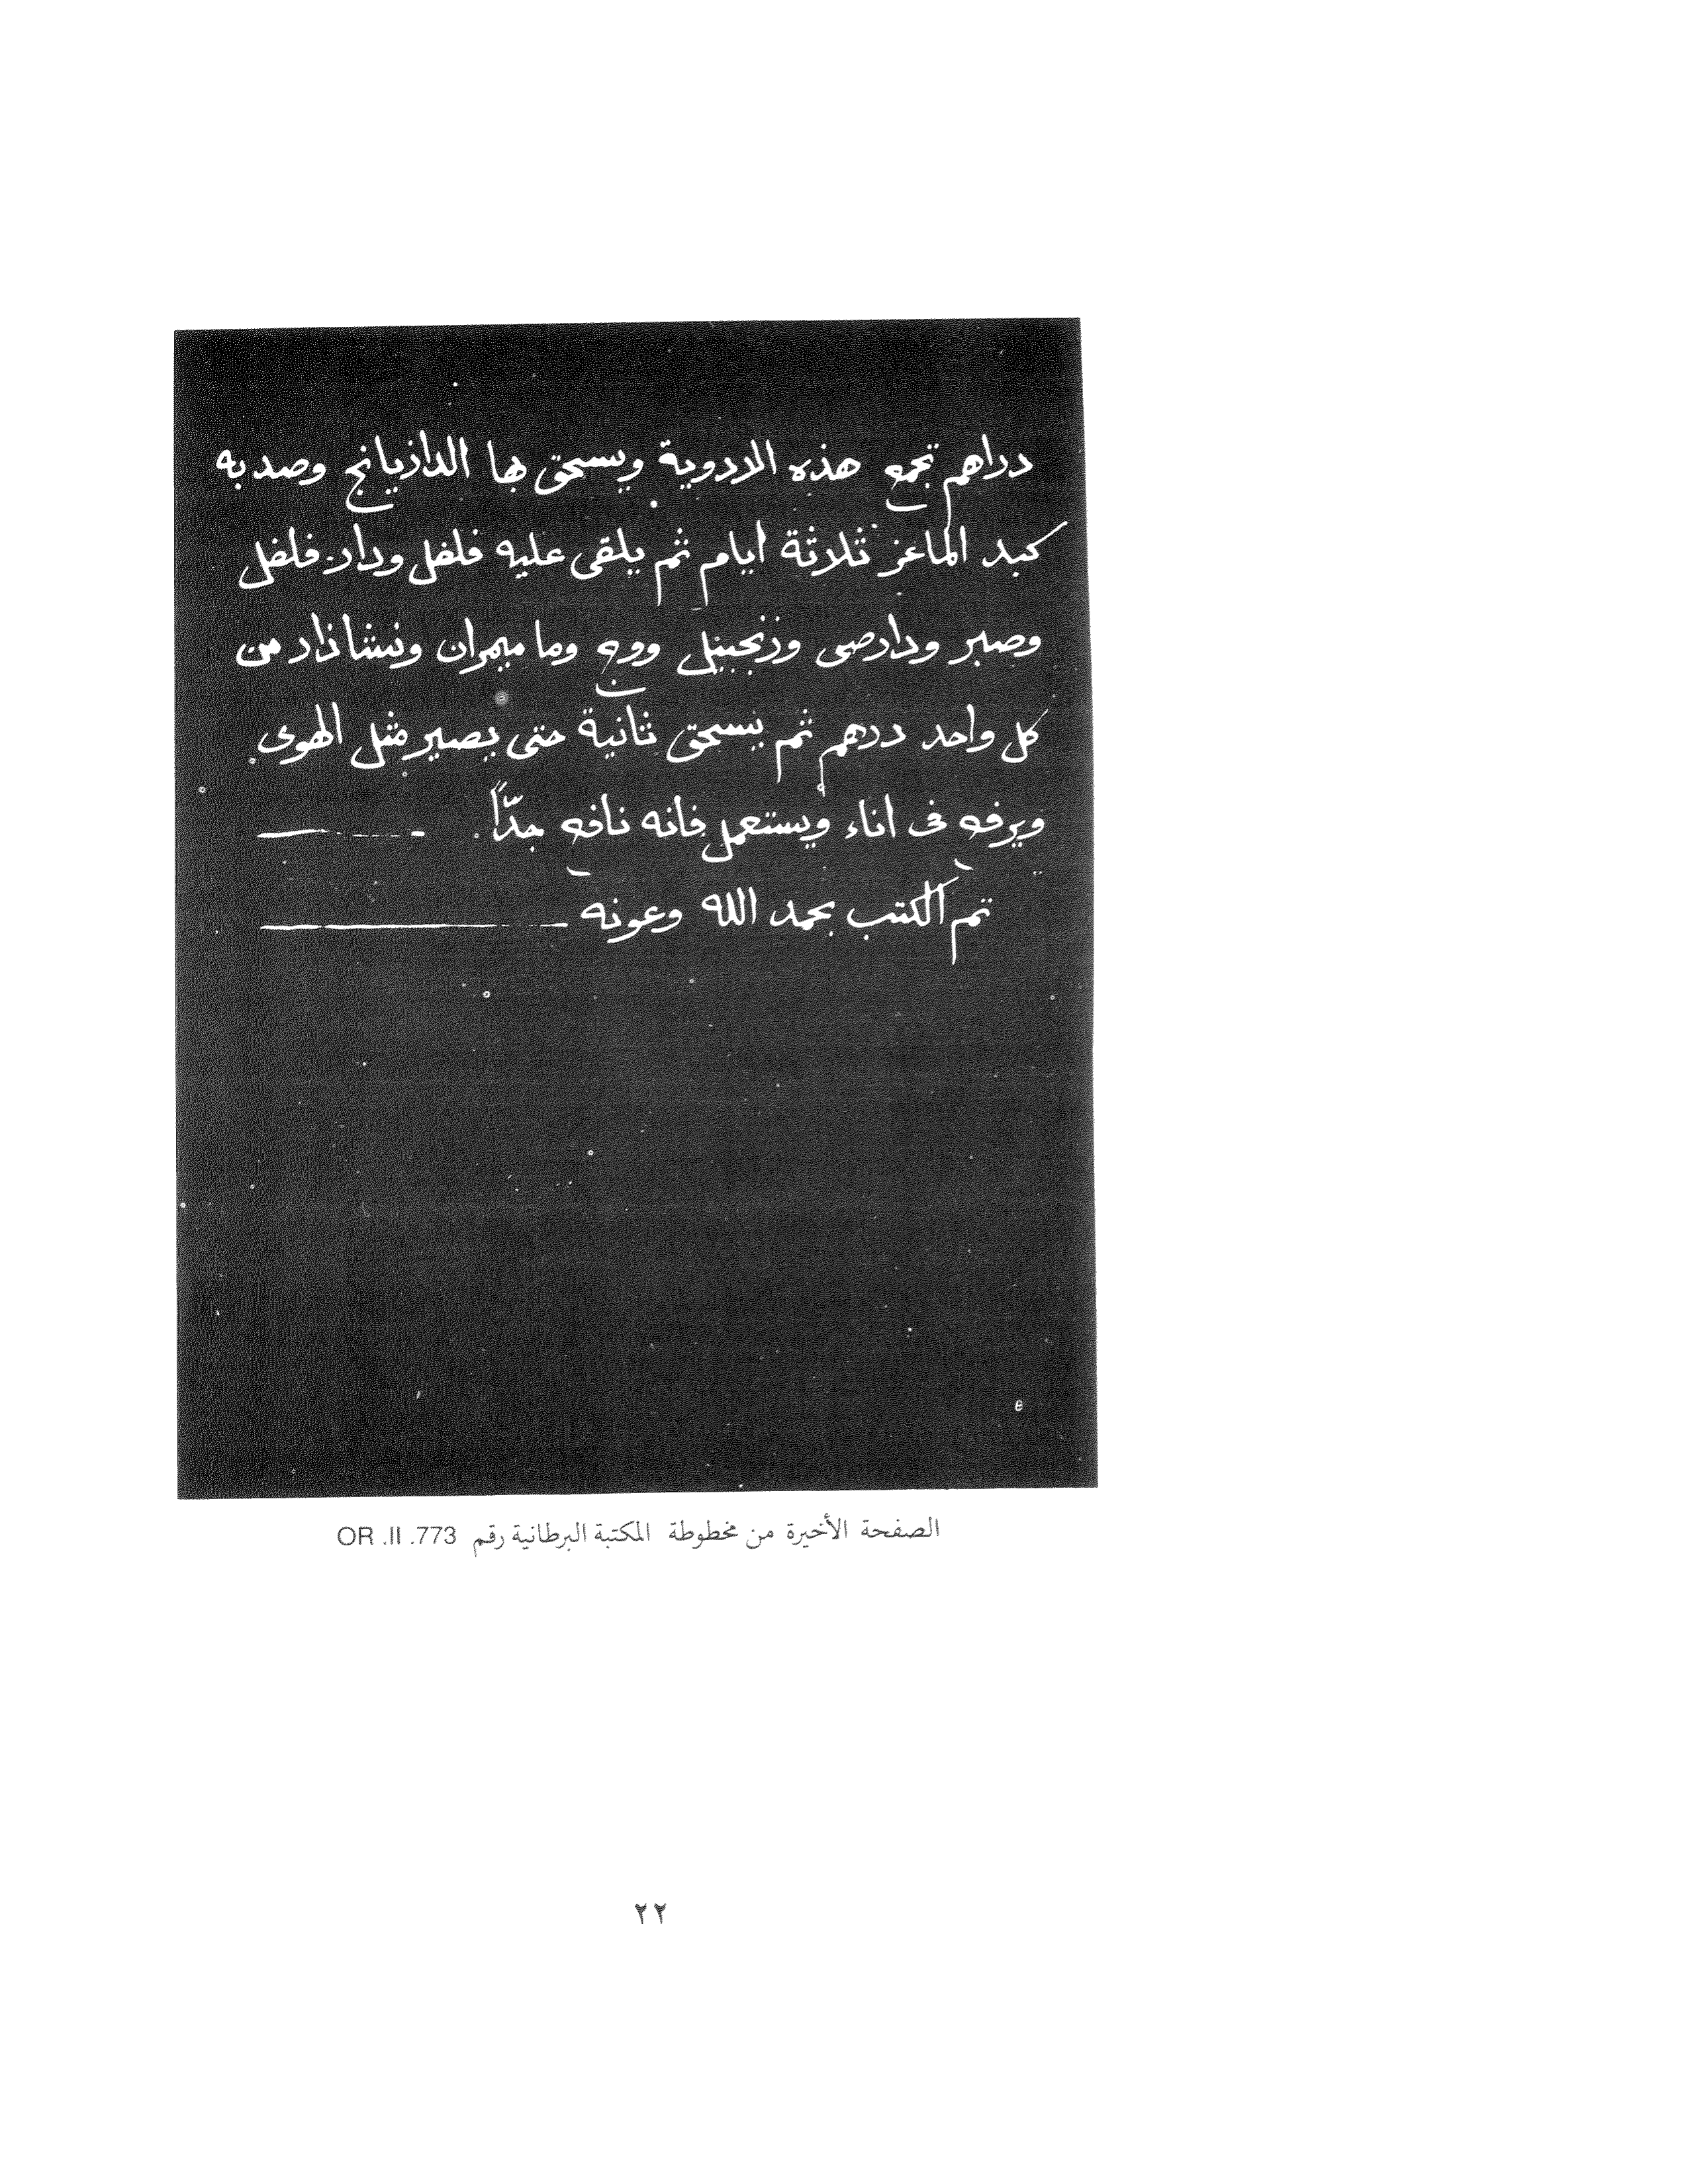 دراهم تجمع هذه الادوية ويسحق بها الدازيانج وصديه
كبد الماعز ثلاثة ايام ثم يلقى عليه فلفل ودار فلفل
وصبر ودارصى وزنجبيل ووج وما ميمران ونشاذار من
كل واحد درهم ثم يسحق ثانية حتى يصير مثل الهوى
ويرفع فى اناء ويستعمل فانه نافع جدّاً
تم الكتب بحمد الله وعونه
الصفحة الأخيرة من مخطوطة المكتبة البرطانية رقم OR .II .773
٢٢